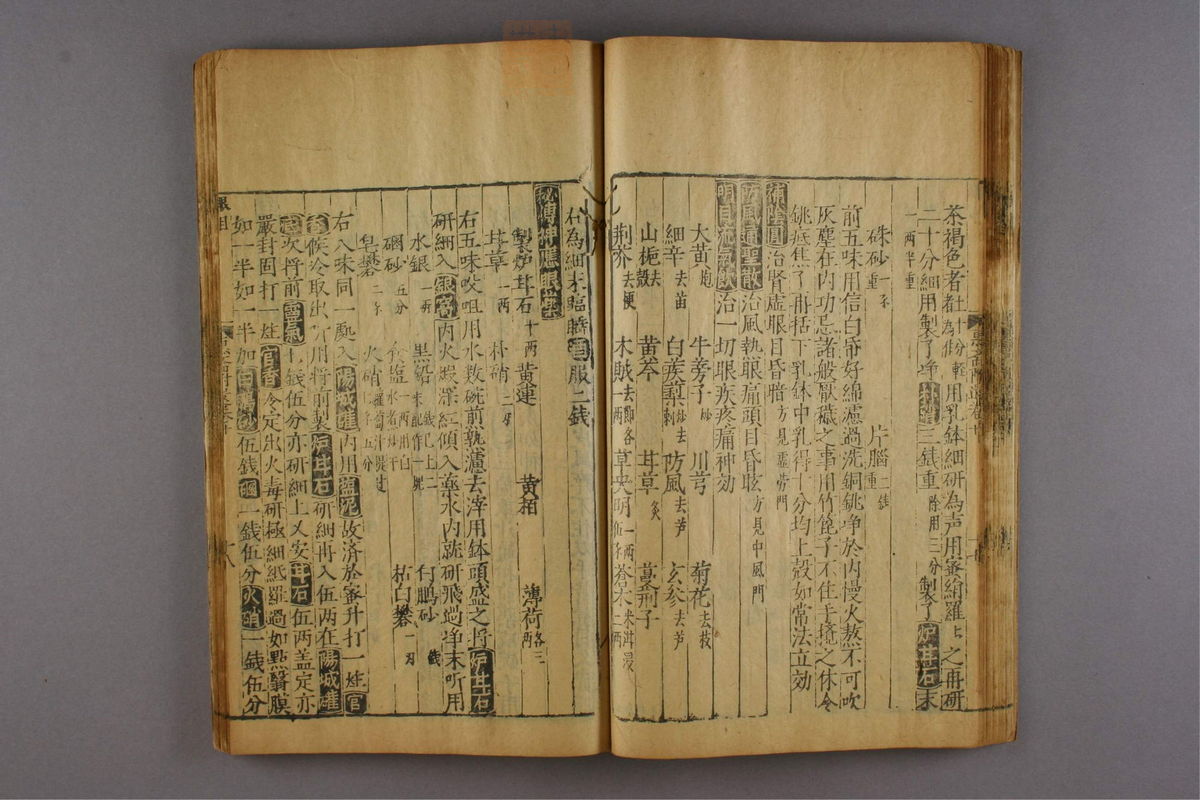 茶褐色者杜十分輕用乳鉢細研為声用蜜絹羅上之再研
二十分細用製了净朴硝三錢重除用三分製了炉甘石末
一兩半重
硃砂一錢重 片腦二錢重
前五味用信白帋好綿濾過洗銅銚净於内慢火熬不可吹
灰塵在内切忌諸般厭穢之事用竹篦子不住手攪之休令
銚底焦了再括下乳鉢中乳得十分均上殼如常法立効
補陰圓治腎虛眼目昏暗方見虛勞門
防風通聖散治風熱眼痛頭目昏眩方見中風門
明目流氣飲治一切眼疾疼痛神効
大黃炮 牛蒡子炒 川芎 菊花去枝
細辛去苗 白蒺藜炒去刺 防風去芦 玄參去芦
山梔去殼 黃芩 甘草炙 蔓荆子
荆芥去梗 木賊去節各一兩 草决明一兩 蒼术米泔浸二兩
右為細末臨臥酒服二錢
秘傳神應眼藥
製炉甘石十兩 黃連 黃栢 薄荷各三兩
甘草一兩 朴硝二兩
右五味㕮咀用水数碗煎熟濾去滓用鉢頭盛之將炉甘石
研細入銀窩内火煅深紅傾入藥水内就研飛過净末听用
水銀一兩 黑鉛 硼砂
硇砂五分 食塩 枯白礬一兩
皂礬二錢 火硝
右入味同一處入陽城礶内用塩泥故済於蜜升打一炷官
香候冷取出听用將前製炉甘石研細再入伍两在陽城礶
底次將前靈氣七錢伍分亦研細上又安甘石伍两盖定亦
嚴封固打一炷官香令定出火毒研極細紙羅過如點翳膜
如一半如一半加白硼砂伍錢硇一錢伍分火硝一錢伍分